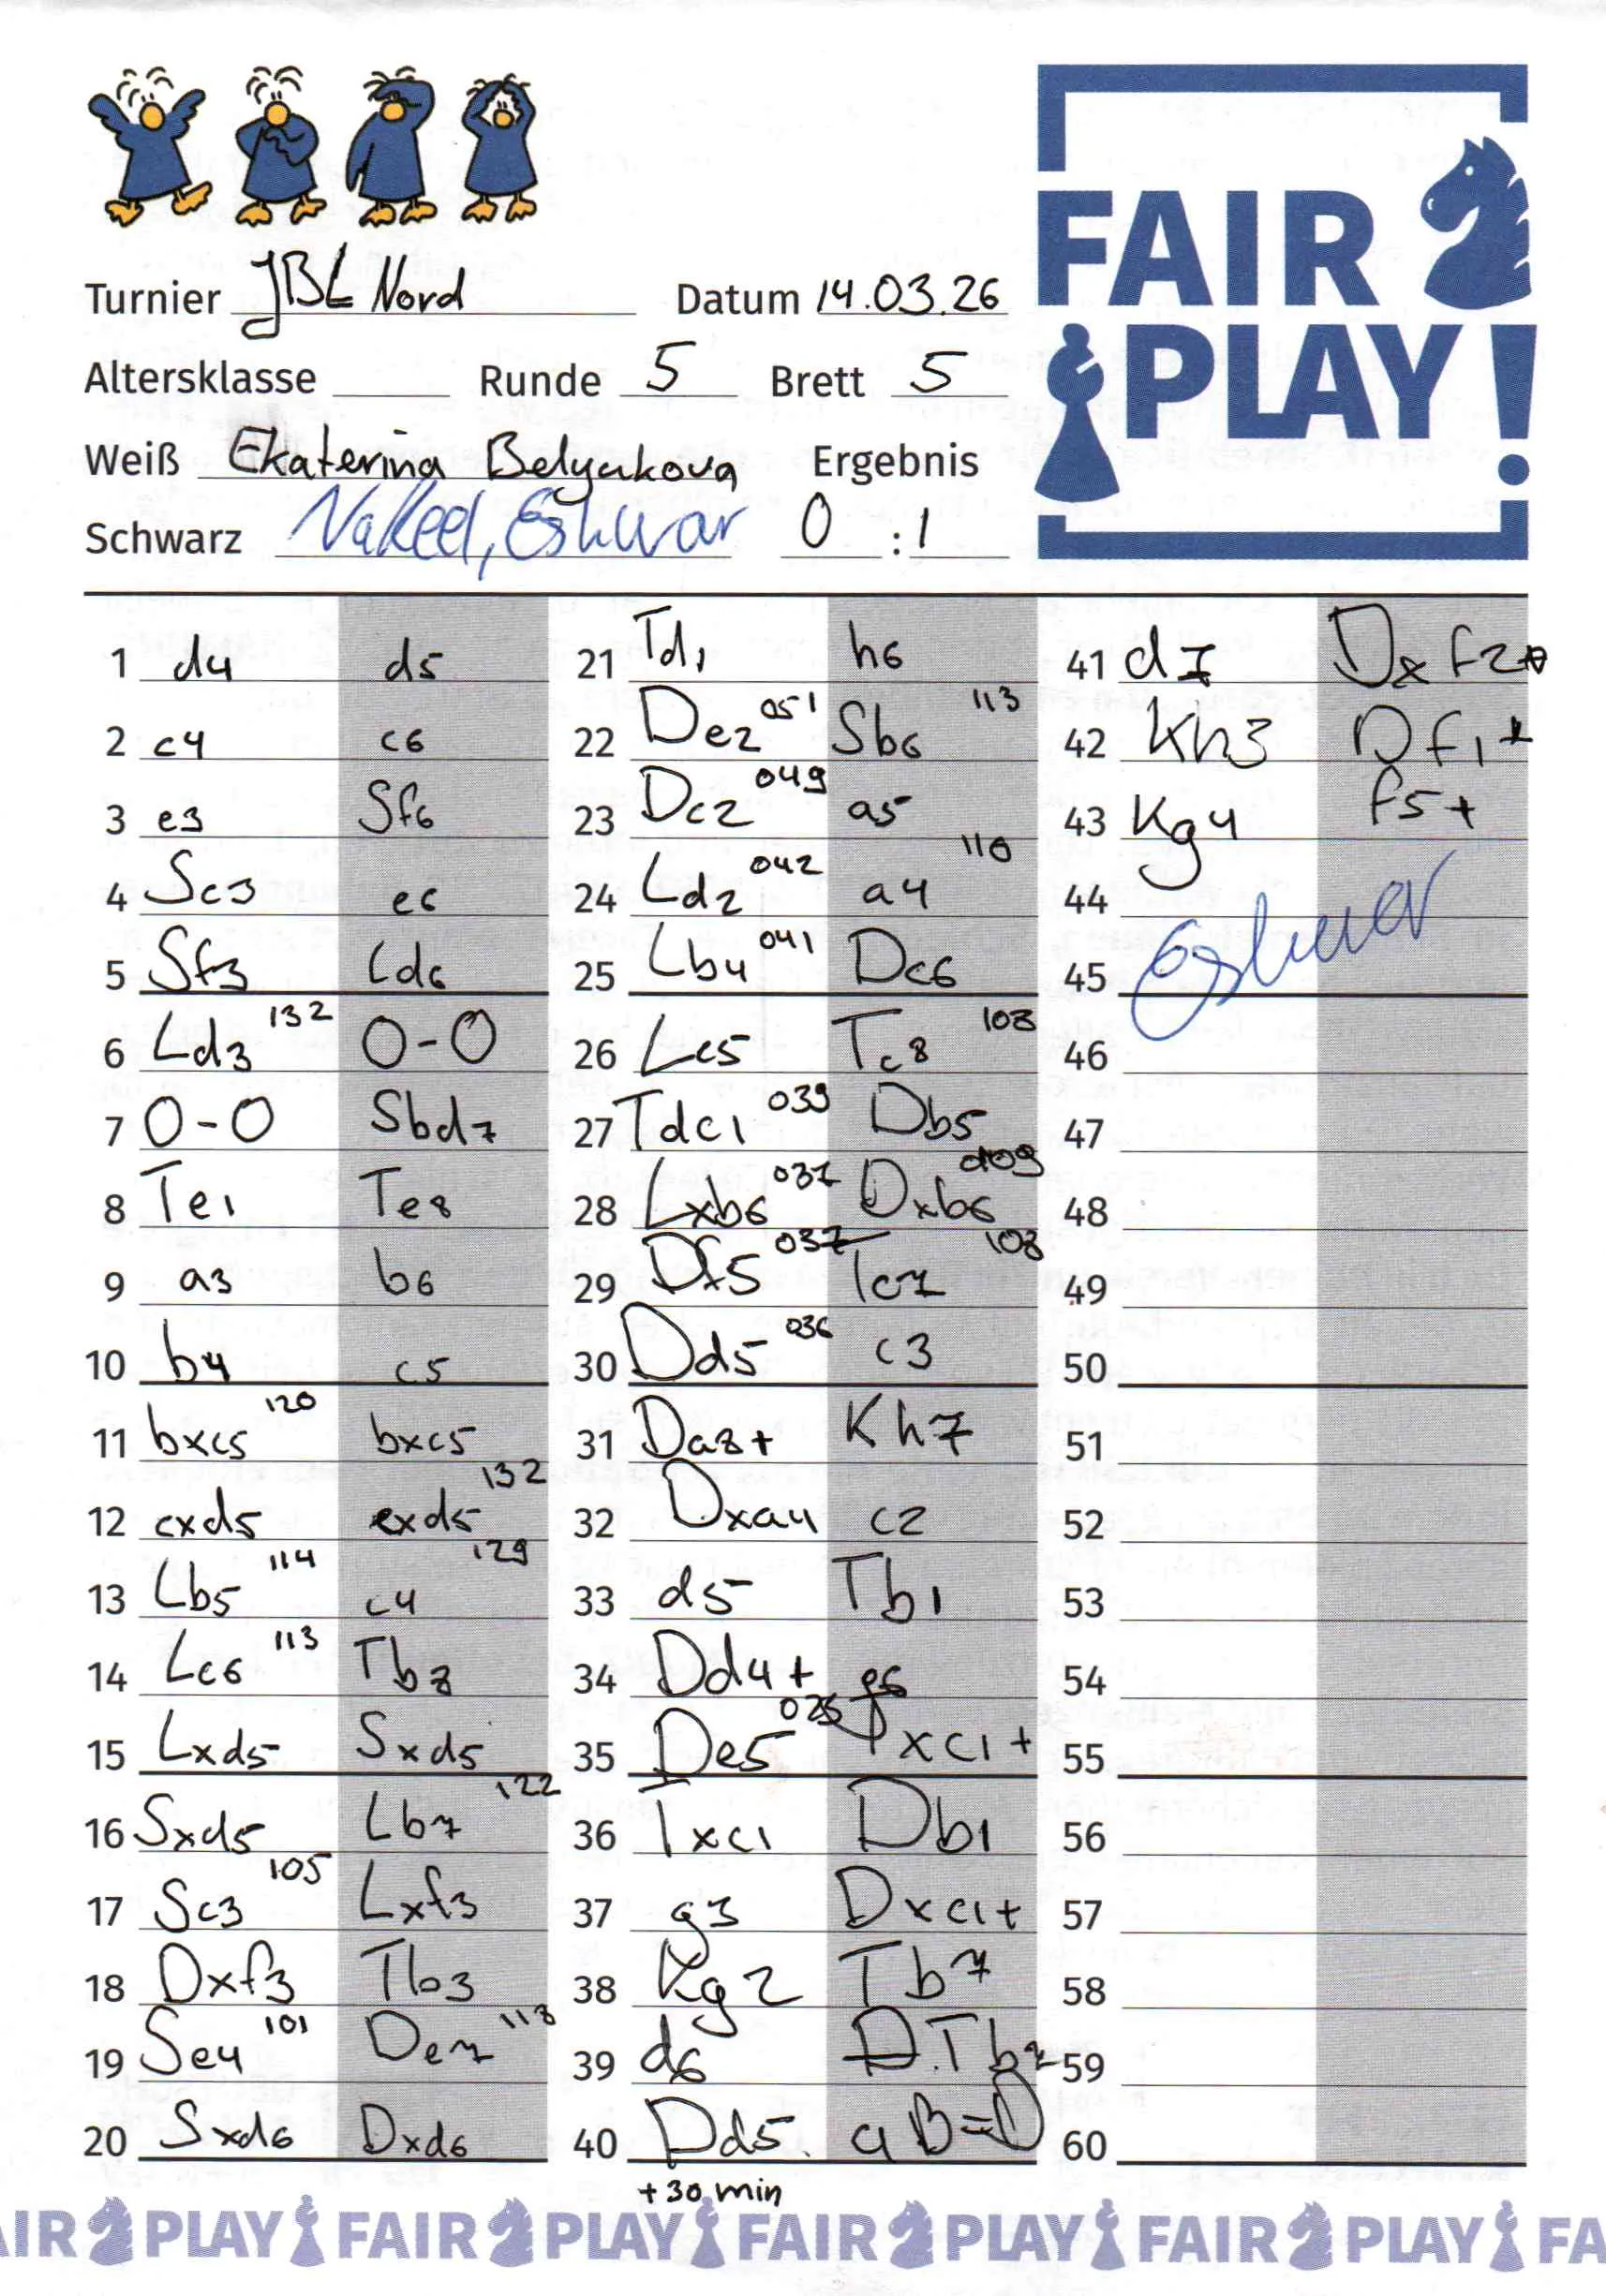 FAIR
PLAY!
Turnier JBL Nord Datum 14.03.26
Altersklasse Runde 5 Brett 5
Weiß Ekaterina Belyakova Ergebnis
Schwarz Nakeel, Eshwar 0 : 1
1 d4 d5
2 c4 c6
3 e3 Sf6
4 Sc3 e6
5 Sf3 Ld6
6 Ld3 132 0-0
7 0-0 Sbd7
8 Te1 Te8
9 a3 b6
10 b4 c5
11 bxc5 120 bxc5
12 cxd5 exd5 132
13 Lb5 114 c4 129
14 Lc6 113 Tb8
15 Lxd5 Sxd5
16 Sxd5 Lb7 122
17 Sc3 105 Lxf3
18 Dxf3 Tb3
19 Se4 101 De7 118
20 Sxd6 Dxd6
21 Td1 h6
22 De2 051 Sb6 113
23 Dc2 049 a5
24 Ld2 042 a4 110
25 Lb4 041 Dc6
26 Lc5 Tc8 108
27 Tdc1 039 Db5
28 Lxb6 037 Dxb6 109
29 Df5 037 Tc7 108
30 Dd5 036 c3
31 Da8+ Kh7
32 Dxa4 c2
33 d5 Tb1
34 Dd4+ g6
35 De5 025 Txc1+
36 Txc1 Db1
37 g3 Dxc1+
38 Kg2 Tb7
39 d6 Tb2
40 Dd5. a B=D
+30 min
41 d7 Dxf2+
42 Kh3 Df1+
43 Kg4 f5+
44
45 Eshwar
46
47
48
49
50
51
52
53
54
55
56
57
58
59
60
AIR PLAY FAIR PLAY FAIR PLAY FAIR PLAY FA